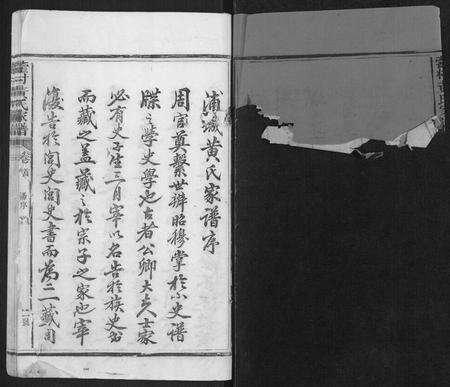 浦滅黄氏家谱序
周官奠繫世辨昭穆掌於小史谱
牒之学史學也古者公卿大夫士家
必有史子生三月宰以名告於族史书
而藏之盖藏之於宗子之家也宰
復告於閭史閭史書而為二一藏閭
黄氏家譜
卷首